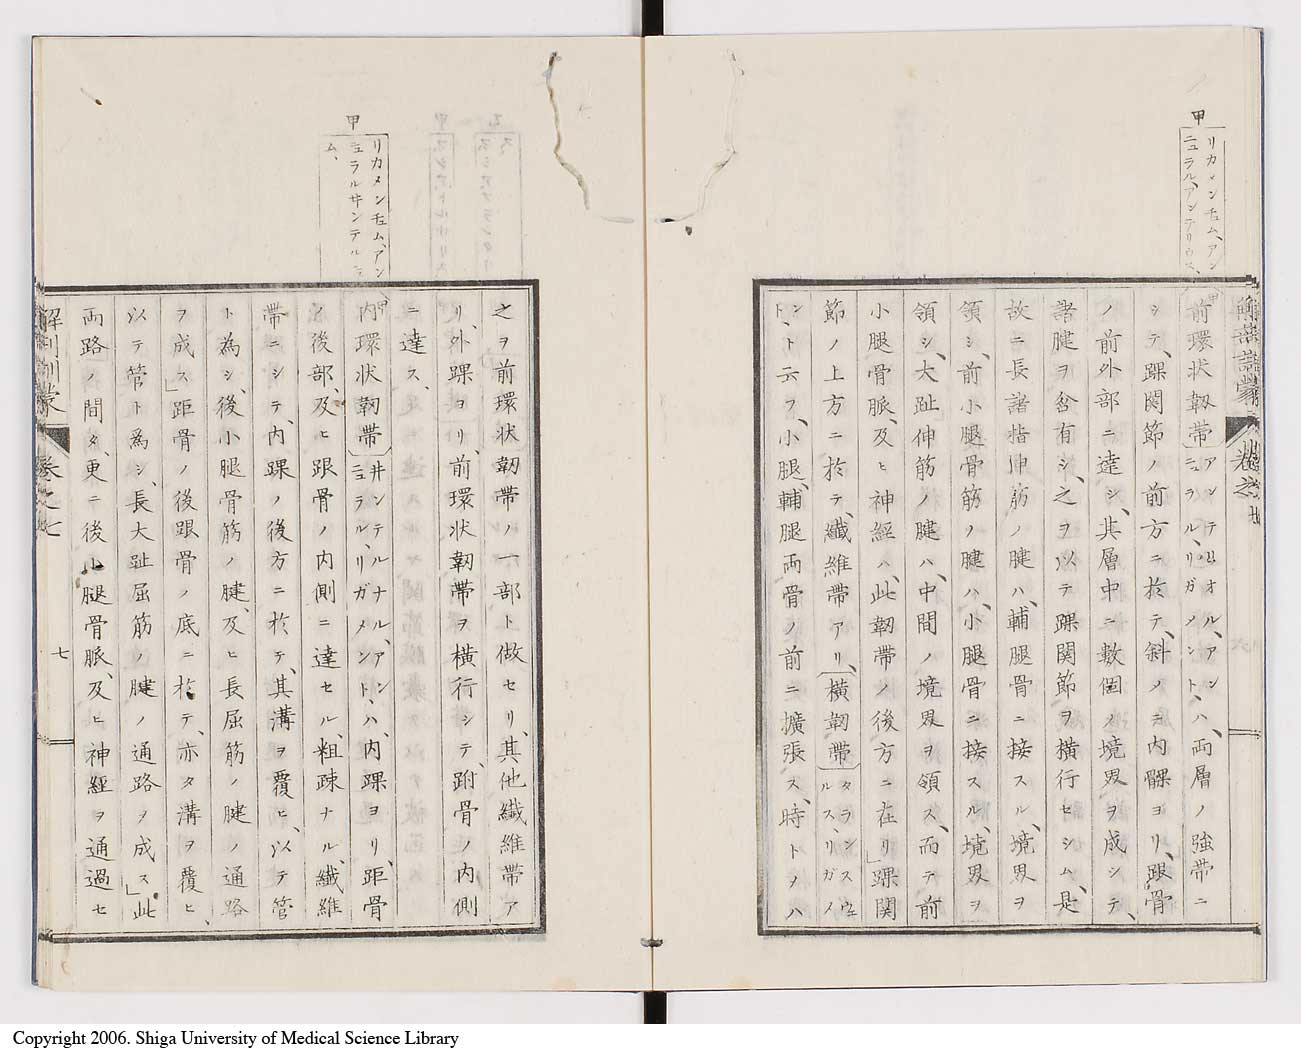 甲
リカメンチュム、アン
ニュラル、アンテリウス、
前環状韌帯 アンテㇼオル、アン
ニュラル、リガメント、ハ、両層ノ強帯ニ
シテ、踝関節ノ前方ニ於テ、斜メニ内髁ヨリ、跟骨
ノ前外部ニ達シ、其層中ニ數個ノ境界ヲ成シテ、
諸腱ヲ含有シ、之ヲ以テ踝関節ヲ横行セシム、是
故ニ長諸指伸筋ノ腱ハ、輔腿骨ニ接スル、境界ヲ
領シ、前小腿骨筋ノ腱ハ、小腿骨ニ接スル、境界ヲ
領シ、大趾伸筋ノ腱ハ、中間ノ境界ヲ領ス、而テ前
小腿骨脈、及ヒ神經ハ、此韌帯ノ後方ニ在リ」踝関
節ノ上方ニ於テ、纖維帯アリ、横韌帯 タランスウェ
ルス、リガメ
ント、ト云フ、小腿、輔腿両骨ノ前ニ擴張ス、時トメハ
解剖訓蒙 卷之七
之ヲ前環状韌帯ノ一部ト做セリ、其他纖維帯ア
リ、外踝ヨリ、前環状韌帯ヲ横行シテ、跗骨ノ内側
ニ達ス、
甲
リカメンチュム、アン
ニュラル井ンテルニュ
ム、
内環状韌帯 井ンテルナル、アン
ニュラル、リガメント、ハ、内踝ヨリ、距骨
ノ後部、及ヒ跟骨ノ内側ニ達セル、粗疎ナル、纖維
帯ニシテ、内踝ノ後方ニ於テ、其溝ヲ覆ヒ、以テ管
ト為シ、後小腿骨筋ノ腱、及ヒ長屈筋ノ腱ノ通路
ヲ成ス」距骨ノ後跟骨ノ底ニ於テ、亦タ溝ヲ覆ヒ、
以テ管ト為シ、長大趾屈筋ノ腱ノ通路ヲ成ス」此
両路ノ間タ、更ニ後小腿骨脈、及ヒ神經ヲ通過セ
解剖訓蒙 卷之七
七
Copyright 2006. Shiga University of Medical Science Library